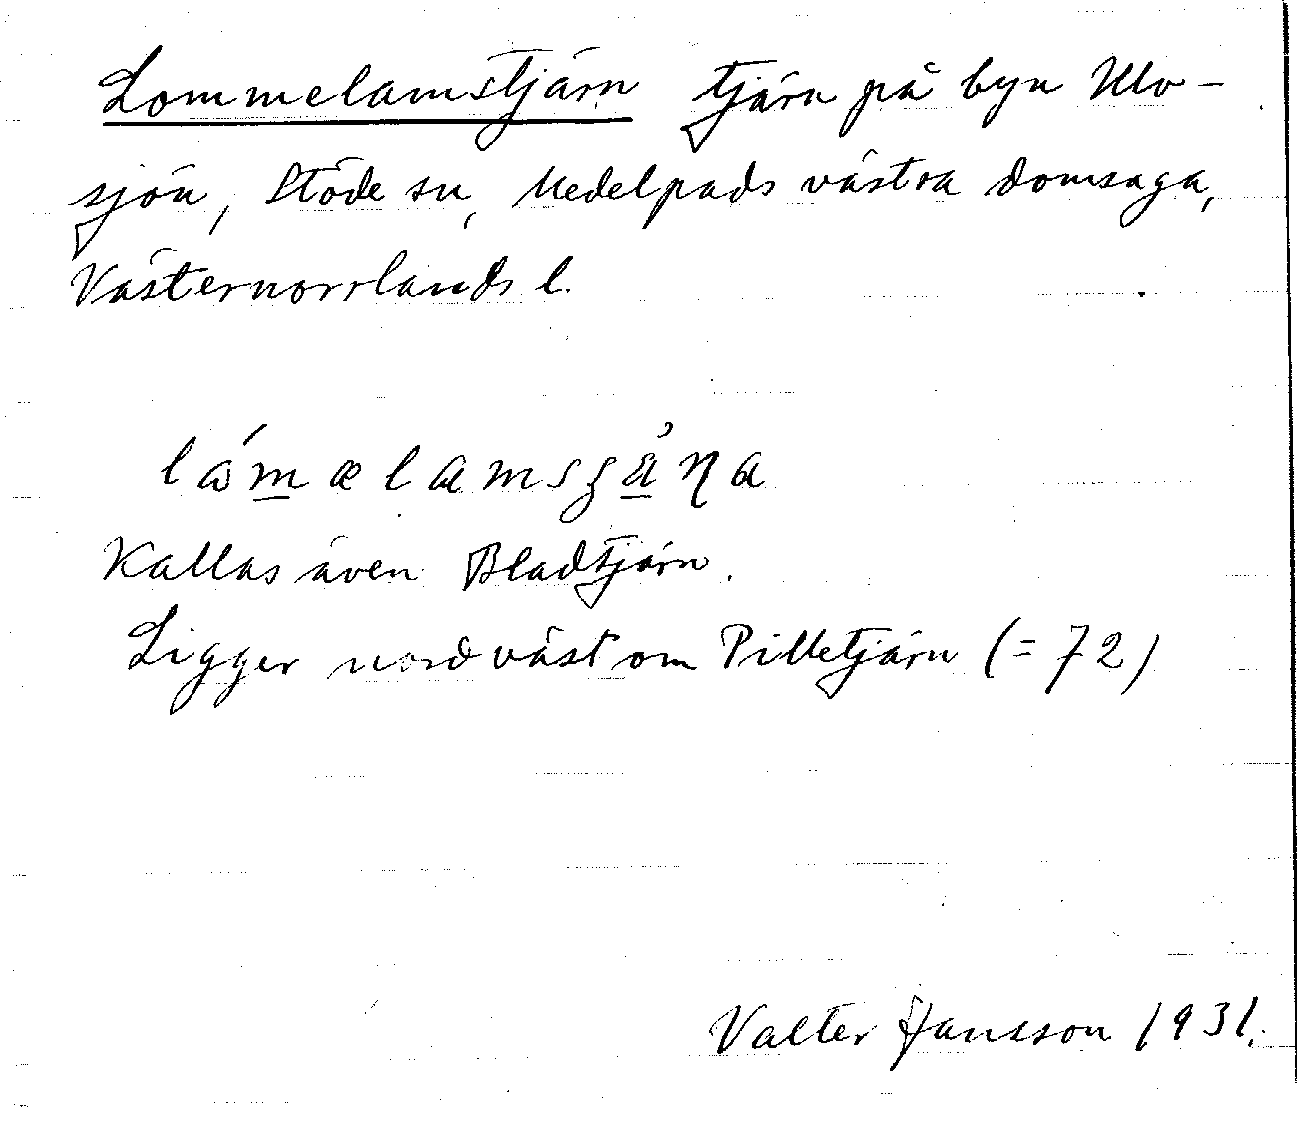 Lommelamstjärn tjärn på byn Ulv-
sjön, Stöde sn, Medelpads västra domsaga,
Västernorrlands l.
Kallas även Bladtjärn.
Ligger nordväst om Pilletjärn (= 72)
Valter Jansson 1931.